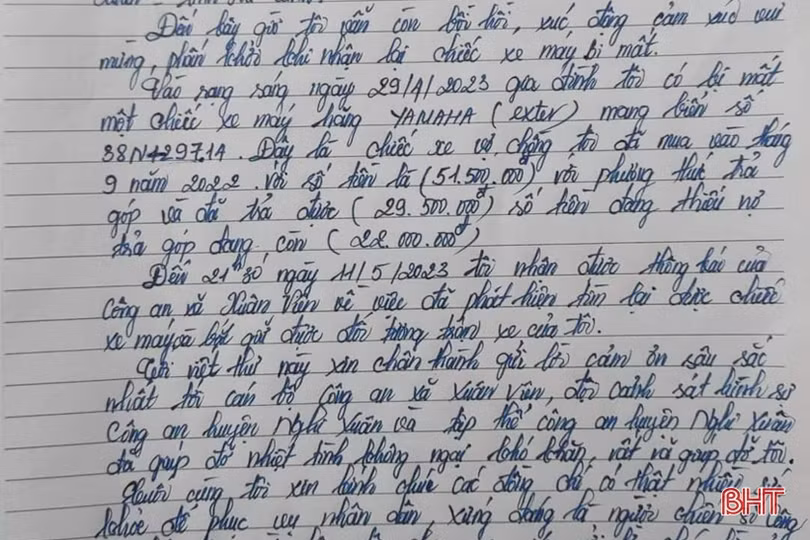 Đến bây giờ tôi vẫn còn bồi hồi, xúc động cảm xúc vui
mừng, phấn khởi khi nhận lại chiếc xe máy bị mất.
Vào rạng sáng ngày 29/4/2023 gia đình tôi có bị mất
một chiếc xe máy hãng YAMAHA (exter) mang biển số
38N1-297.14. Đây là chiếc xe vợ chồng tôi đã mua vào tháng
9 năm 2022 với số tiền là (51.500.000đ) với phương thức trả
góp và đã trả được (29.500.000đ) số tiền đang thiếu nợ
trả góp đang còn (22.000.000đ)
Đến 21h30, ngày 11/5/2023 tôi nhận được thông báo của
công an xã Xuân Viên về việc đã phát hiện tìm lại được chiếc
xe máy và bắt giữ được đối tượng trộm xe của tôi.
Tôi viết thư này xin chân thành gửi lời cảm ơn sâu sắc
nhất tới cán bộ công an xã Xuân Viên, đội cảnh sát hình sự
công an huyện Nghi Xuân và tập thể công an huyện Nghi Xuân
đã giúp đỡ nhiệt tình không ngại khó khăn, vất vả giúp đỡ tôi.
Cuối cùng tôi xin kính chúc các đồng chí có thật nhiều sức
khỏe để phục vụ nhân dân, xứng đáng là người chiến sĩ công
BHT